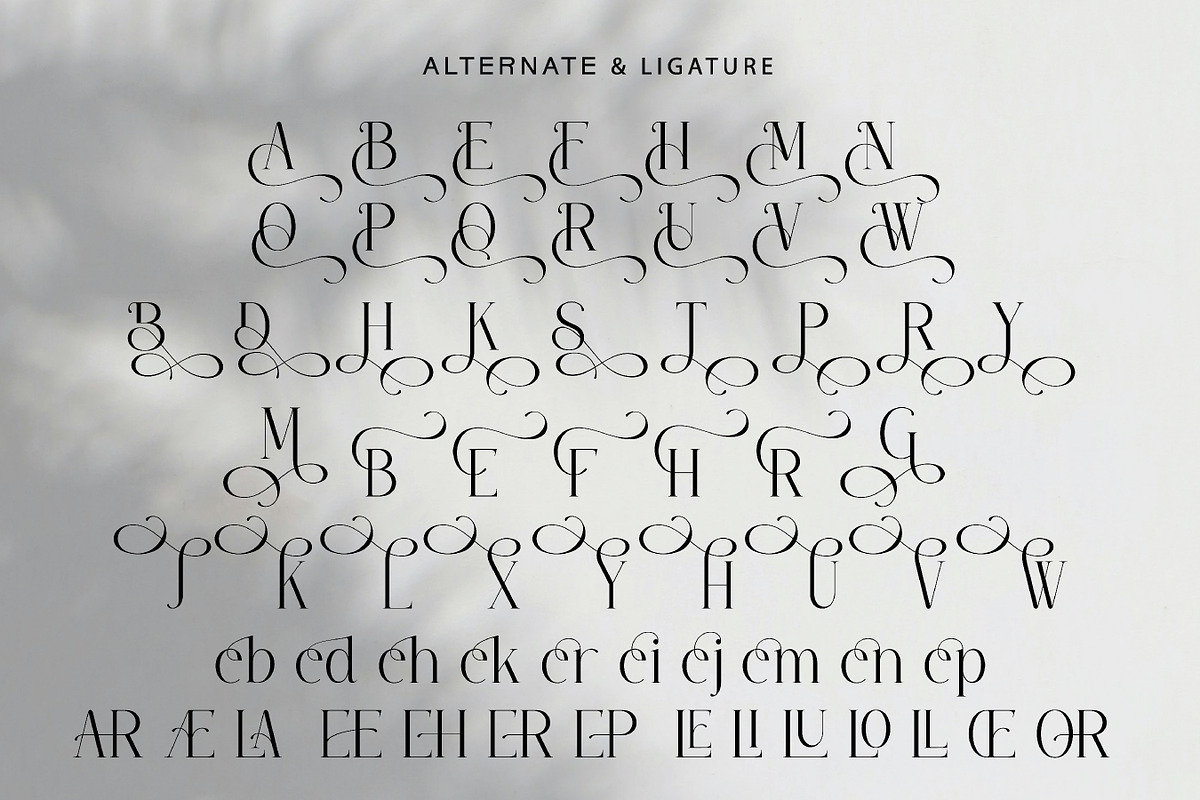 ALTERNATE & LIGATURE
A B E F H M N
O P Q R U V W
B D H K S T P R Y
M B E F H R G
J K L X Y H U V W
eb ed eh ek er ei ej em en ep
AR Æ LA EE EH ER EP LE LI LU LO LL Œ OR